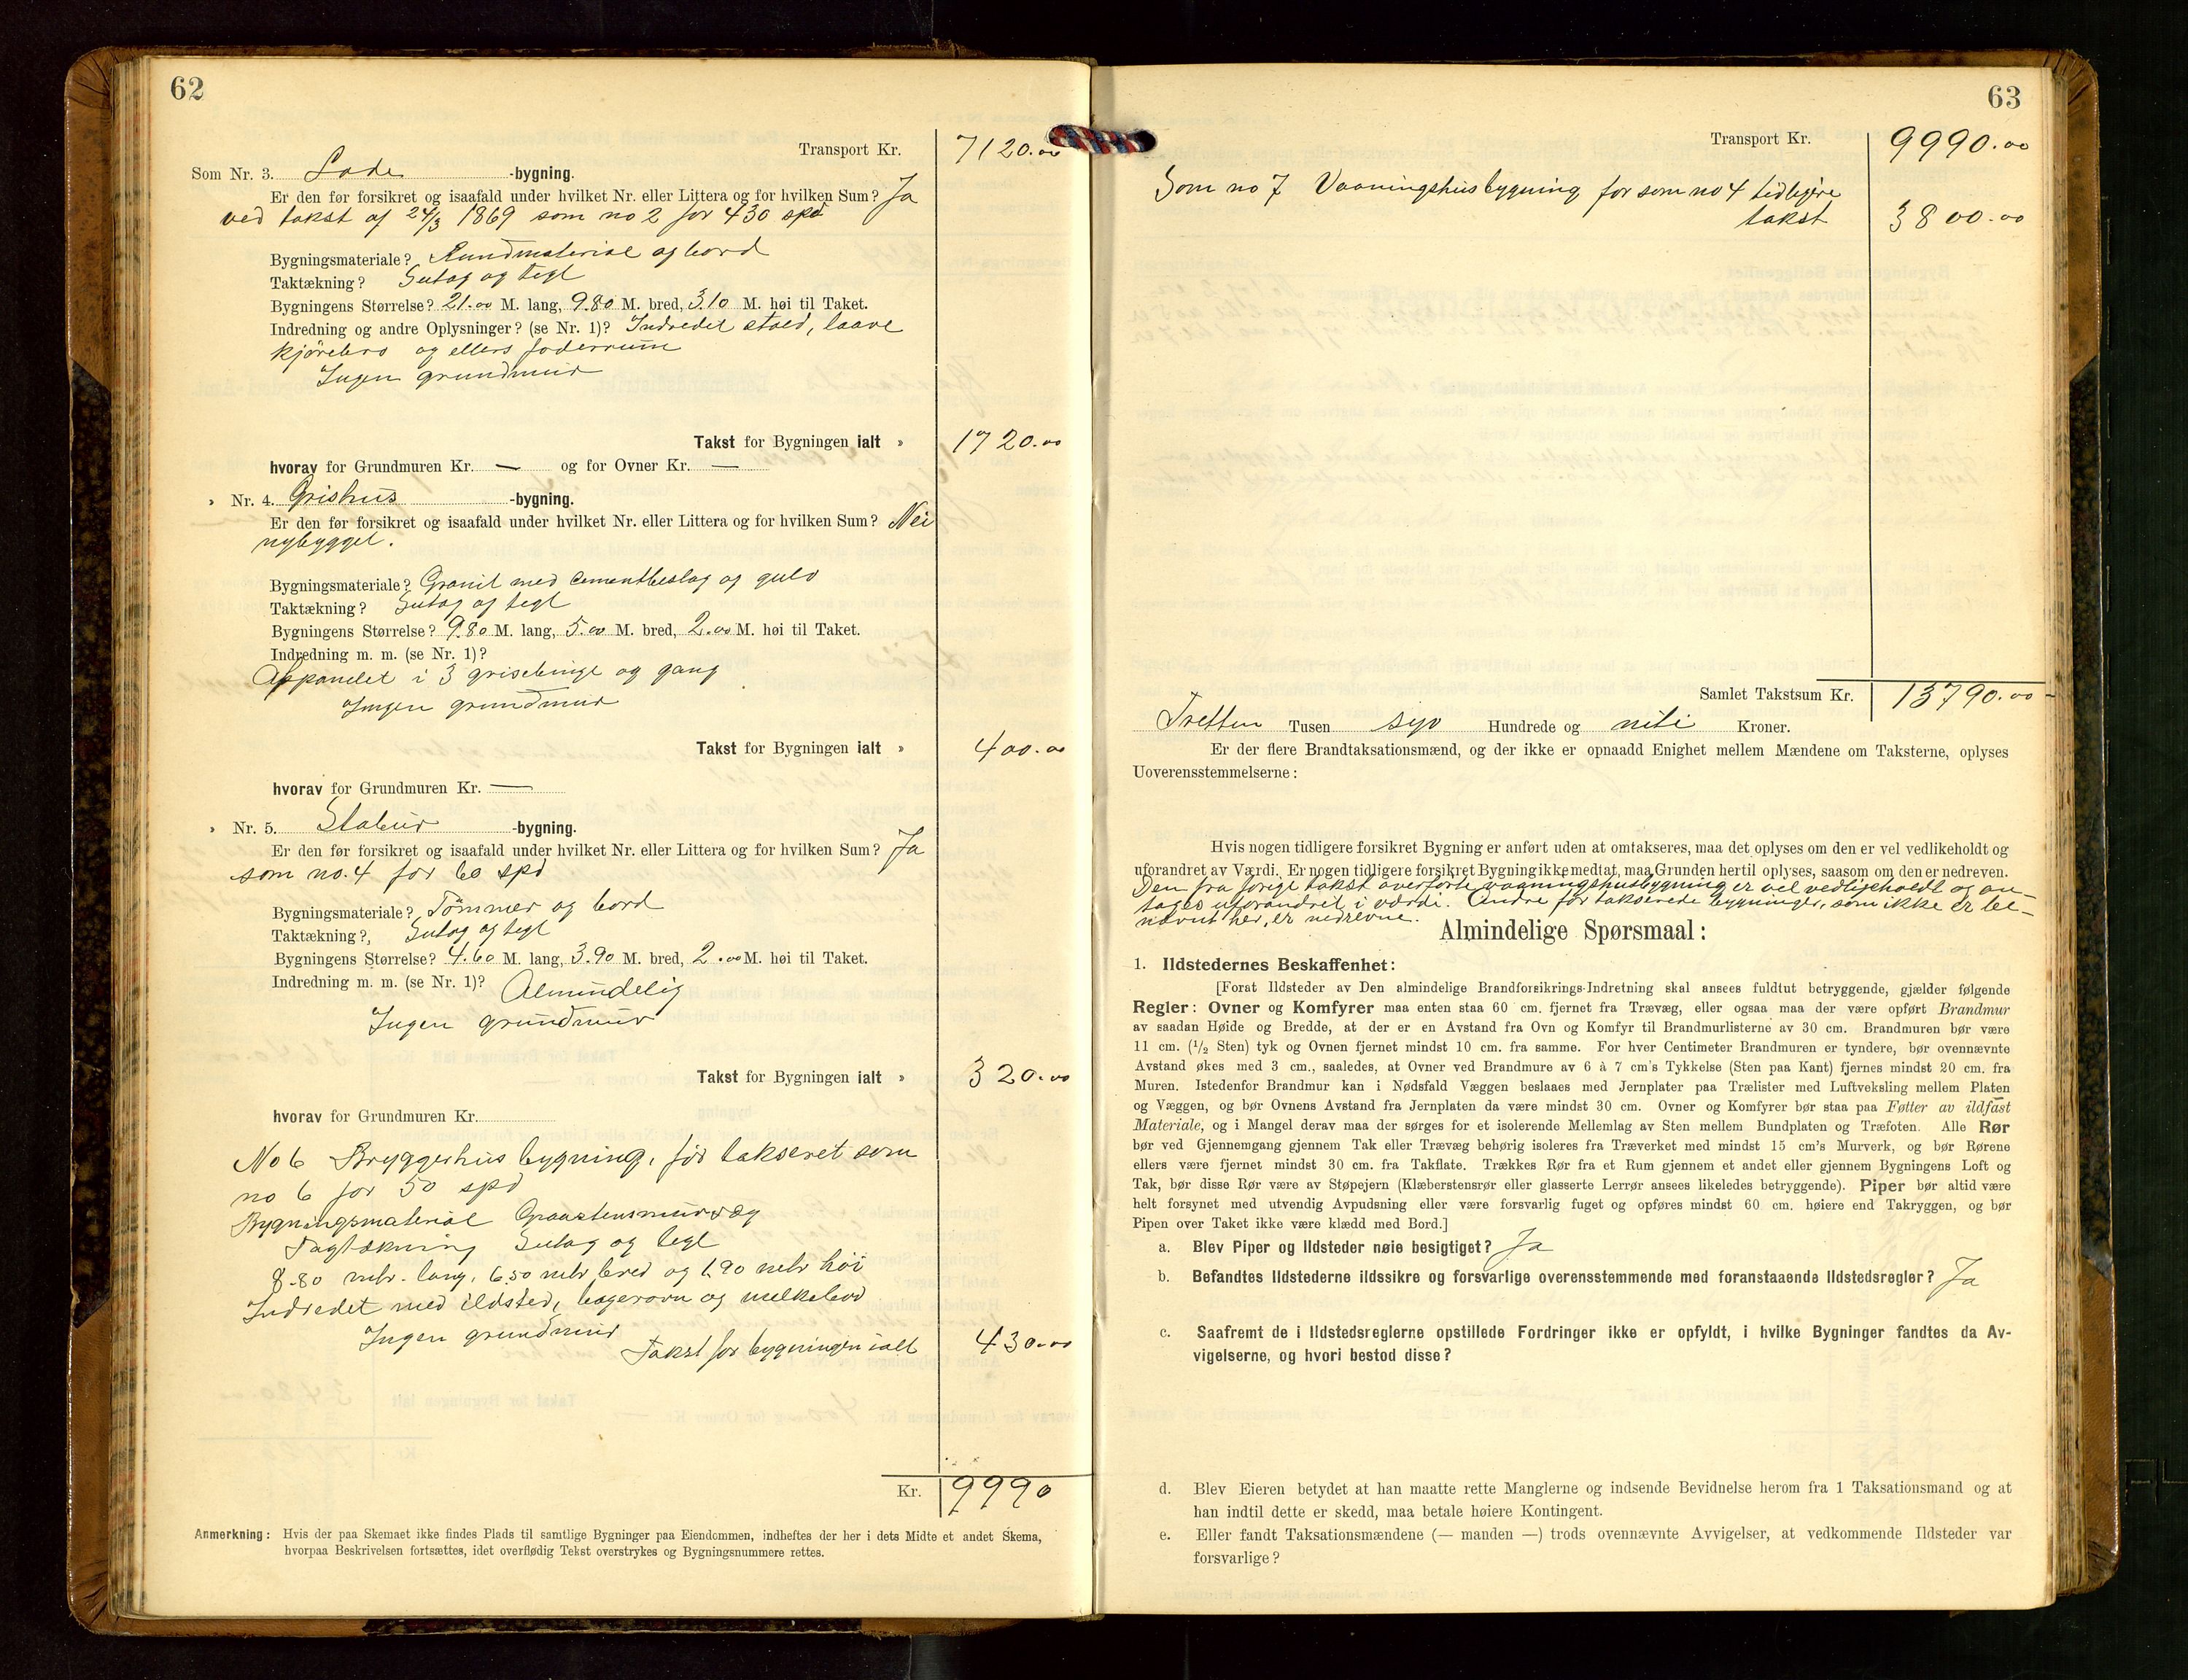 62
Transport Kr. 7120.00
Som Nr. 3. Lade -bygning.
Er den før forsikret og isaafald under hvilket Nr. eller Littera og for hvilken Sum? Ja
ved takst af 24/3 1869 som no 2 for 430 spd
Bygningsmateriale? Rundmateriale og bord
Taktækning? Sutag og tegl
Bygningens Størrelse? 21.00 M. lang, 9.80 M. bred, 3.10 M. høi til Taket.
Indredning og andre Oplysninger? (se Nr. 1)? Indredet stald, laave
kjørebro og ellers foderrum
Ingen grundmur
Takst for Bygningen ialt » 1720.00
hvorav for Grundmuren Kr. — og for Ovner Kr. —
» Nr. 4. Grishus -bygning.
Er den før forsikret og isaafald under hvilket Nr. eller Littera og for hvilken Sum? Nei
nybygget.
Bygningsmateriale? Granit med cementbeslag og gulv
Taktækning? Sutag og tegl
Bygningens Størrelse? 9.80 M. lang, 5.00 M. bred, 2.00 M. høi til Taket.
Indredning m. m. (se Nr. 1)?
Afpanelet i 3 grisebinge og gang
Ingen grundmur
Takst for Bygningen ialt » 400.00
hvorav for Grundmuren Kr. —
» Nr. 5. Stabur -bygning.
Er den før forsikret og isaafald under hvilket Nr. eller Littera og for hvilken Sum? Ja
som no. 4 for 60 spd
Bygningsmateriale? Tømmer og bord
Taktækning? Sutag og tegl
Bygningens Størrelse? 4.60 M. lang, 3.90 M. bred, 2.00 M. høi til Taket.
Indredning m. m. (se Nr. 1)? Almindelig
Ingen grundmur
Takst for Bygningen ialt » 320.00
hvorav for Grundmuren Kr.
No 6 Bryggerhus bygning, før takseret som
no 6 for 50 spd
Bygningsmateriale Graastensmurvæg
Tagtækning Sutag og tegl
8.80 mtr. lang, 6.50 mtr bred og 1.90 mtr høi
Indredet med ildsted, bagerovn og melkebod
Ingen grundmur
Takst for bygningen ialt 430.00
Kr. 9990
Anmerkning: Hvis der paa Skemaet ikke findes Plads til samtlige Bygninger paa Eiendommen, indheftes der her i dets Midte et andet Skema,
hvorpaa Beskrivelsen fortsættes, idet overflødig Tekst overstrykes og Bygningsnummere rettes.
63
Transport Kr. 9990.00
Som no 7 Vaaningshusbygning for som no 4 tidligere
takst 3800.00
Samlet Takstsum Kr. 13790.00
Tretten Tusen syv Hundrede og niti Kroner.
Er der flere Brandtaksationsmænd, og der ikke er opnaadd Enighet mellem Mændene om Taksterne, oplyses
Uoverensstemmelserne:
Hvis nogen tidligere forsikret Bygning er anført uden at omtakseres, maa det oplyses om den er vel vedlikeholdt og
uforandret av Værdi. Er nogen tidligere forsikret Bygning ikke medtat, maa Grunden hertil oplyses, saasom om den er nedreven.
Den fra forige takst overførte vaaningshusbygning er vel vedligeholdt og an-
tages uforandret i værdi. Andre før takserede bygninger, som ikke er be-
nævnt her, er nedrevne.
Almindelige Spørsmaal:
1. Ildstedernes Beskaffenhet:
[Forat Ildsteder av Den almindelige Brandforsikrings-Indretning skal ansees fuldtut betryggende, gjælder følgende
Regler: Ovner og Komfyrer maa enten staa 60 cm. fjernet fra Trævæg, eller ogsaa maa der være opført Brandmur
av saadan Høide og Bredde, at der er en Avstand fra Ovn og Komfyr til Brandmurlisterne av 30 cm. Brandmuren bør være
11 cm. (1/2 Sten) tyk og Ovnen fjernet mindst 10 cm. fra samme. For hver Centimeter Brandmuren er tyndere, bør ovennævnte
Avstand økes med 3 cm., saaledes, at Ovner ved Brandmure av 6 à 7 cm's Tykkelse (Sten paa Kant) fjernes mindst 20 cm. fra
Muren. Istedenfor Brandmur kan i Nødsfald Væggen beslaaes med Jernplater paa Trælister med Luftveksling mellem Platen
og Væggen, og bør Ovnens Avstand fra Jernplaten da være mindst 30 cm. Ovner og Komfyrer bør staa paa Føtter av ildfast
Materiale, og i Mangel derav maa der sørges for et isolerende Mellemlag av Sten mellem Bundplaten og Træfoten. Alle Rør
bør ved Gjennemgang gjennem Tak eller Trævæg behørig isoleres fra Træverket med mindst 15 cm's Murverk, og bør Rørene
ellers være fjernet mindst 30 cm. fra Takflate. Trækkes Rør fra et Rum gjennem et andet eller gjennem Bygningens Loft og
Tak, bør disse Rør være av Støpejern (Klæberstensrør eller glasserte Lerrør ansees likeledes betryggende). Piper bør altid være
helt forsynet med utvendig Avpudsning eller være forsvarlig fuget og opføres mindst 60 cm. høiere end Takryggen, og bør
Pipen over Taket ikke være klædd med Bord.]
a. Blev Piper og Ildsteder nøie besigtiget? Ja
b. Befandtes Ildstederne ildssikre og forsvarlige overensstemmende med foranstaaende Ildstedsregler? Ja
c. Saafremt de i Ildstedsreglerne opstillede Fordringer ikke er opfyldt, i hvilke Bygninger fandtes da Av-
vigelserne, og hvori bestod disse?
d. Blev Eieren betydet at han maatte rette Manglerne og indsende Bevidnelse herom fra 1 Taksationsmand og at
han indtil dette er skedd, maa betale høiere Kontingent.
e. Eller fandt Taksationsmændene (— manden —) trods ovennævnte Avvigelser, at vedkommende Ildsteder var
forsvarlige?